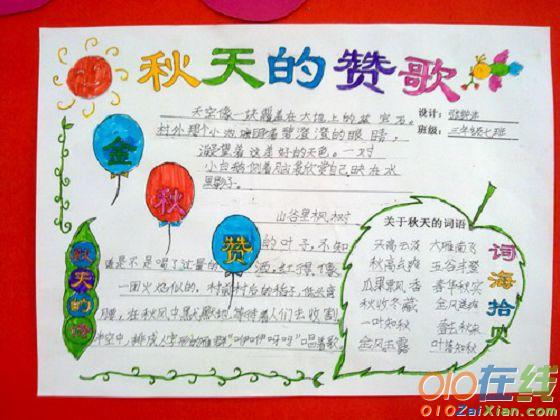 秋天的赞歌
天空像一块覆盖在大地上的蓝宝石。
村外那个小池塘睁着碧澄澄的眼睛,
凝望着这美好的天色。一对
小白鹅侧着脑袋欣赏自己映在水
里影子。
山谷里枫树
的叶子,不知
道是不是喝了过量的酒,红得像
一团火焰似的。村前村后的稻子,低头弯
腰,在秋风中默默地等待着人们去收割
半空中,排成人字形的雁群"咿咿呀呀"唱着歌
设计:
班级: 三年级七班
金
秋
赞
秋天的诗
关于秋天的词语
天高云淡 大雁南飞
秋高气爽 五谷丰登
瓜果飘香 春华秋实
秋收冬藏 金风送爽
一叶知秋 春花秋月
金风玉露 叶落知秋
词海拾贝
010在线
010ZaiXian.com